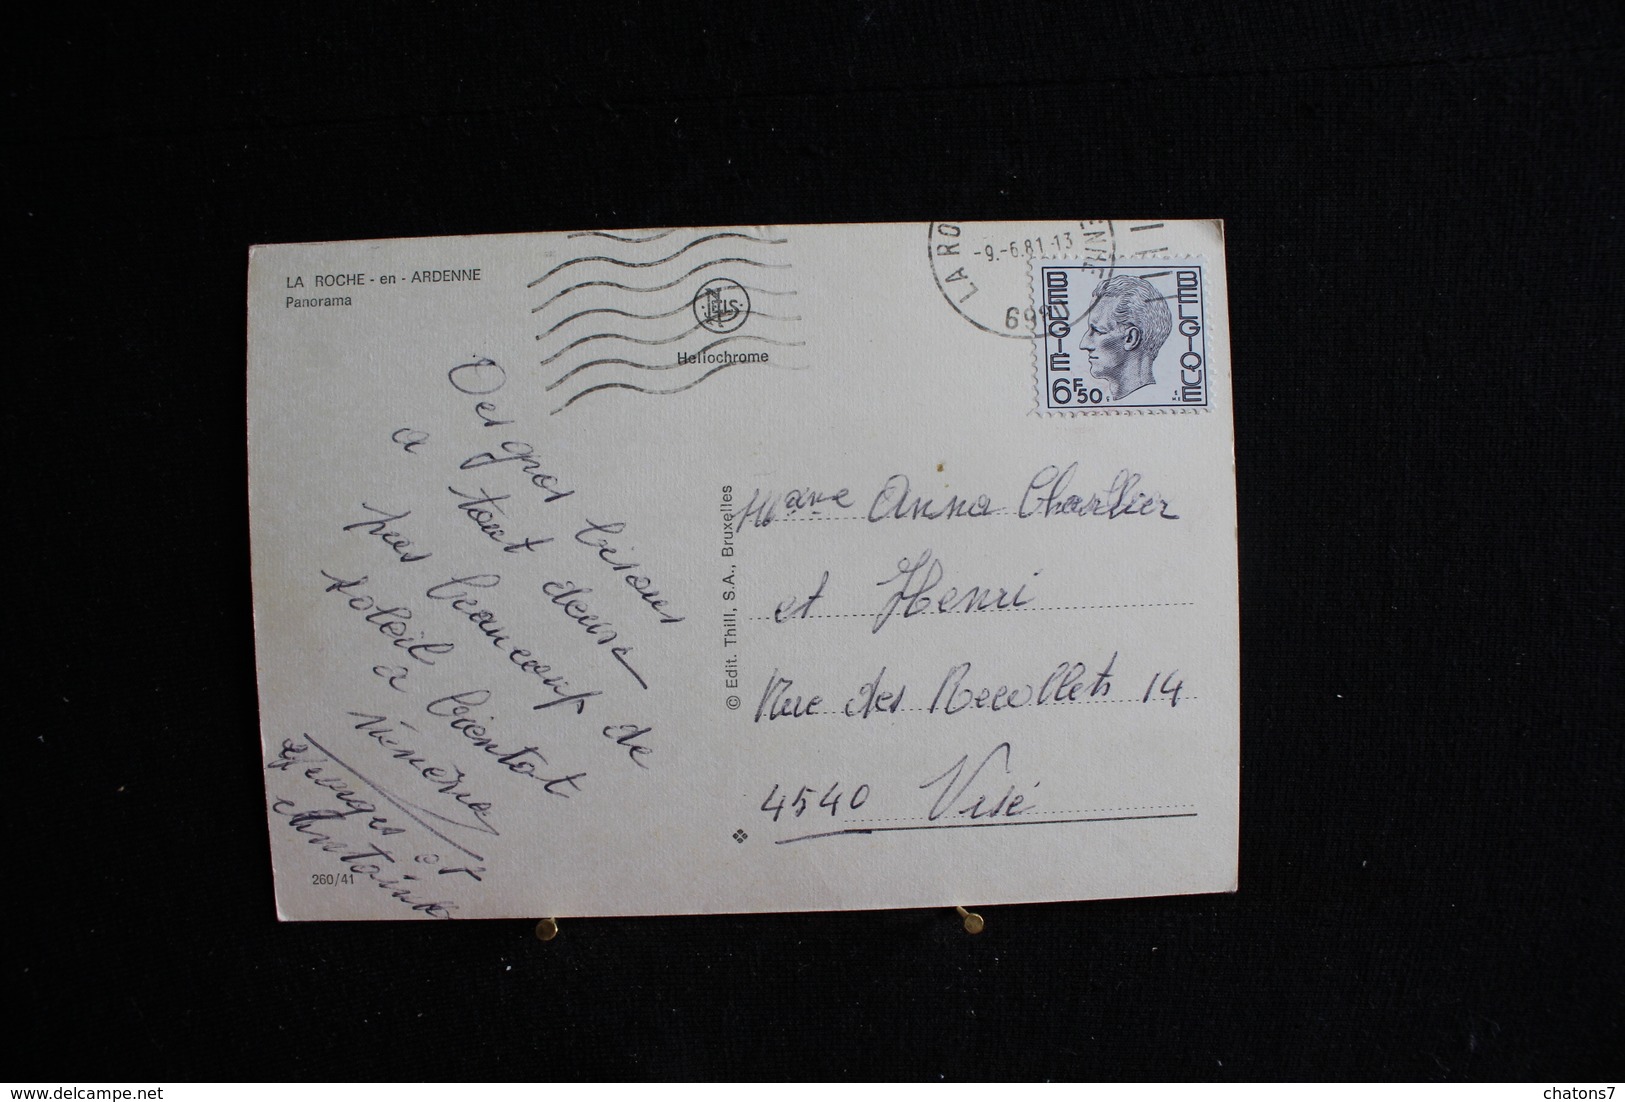 LA ROCHE - en - ARDENNE
Panorama
NELS
Heliochrome
LA RO ENNE
-9.-6.81-13
698
BELGIE
BELGIQUE
6F50
Des gros bisous
a tout deux
pas beaucoup de
soleil
a bientot
Georges et
260/41
© Edit. Thill, S.A., Bruxelles
Mme Anna Charlier
et Henri
Rue des Recollets 14
4540 Visé
delcampe.net
chatons7